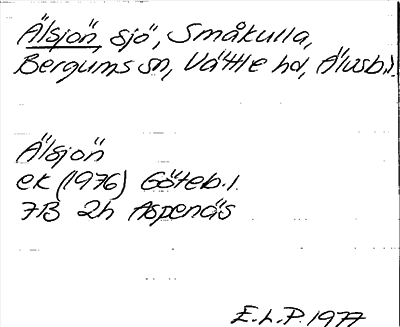 Älsjön, sjö, Småkulla,
Bergums sn, Vättle hd, Älvsb.l.
Älsjön
ek (1976) Göteb.l.
7B 2h Aspenäs
E.L.P. 1977